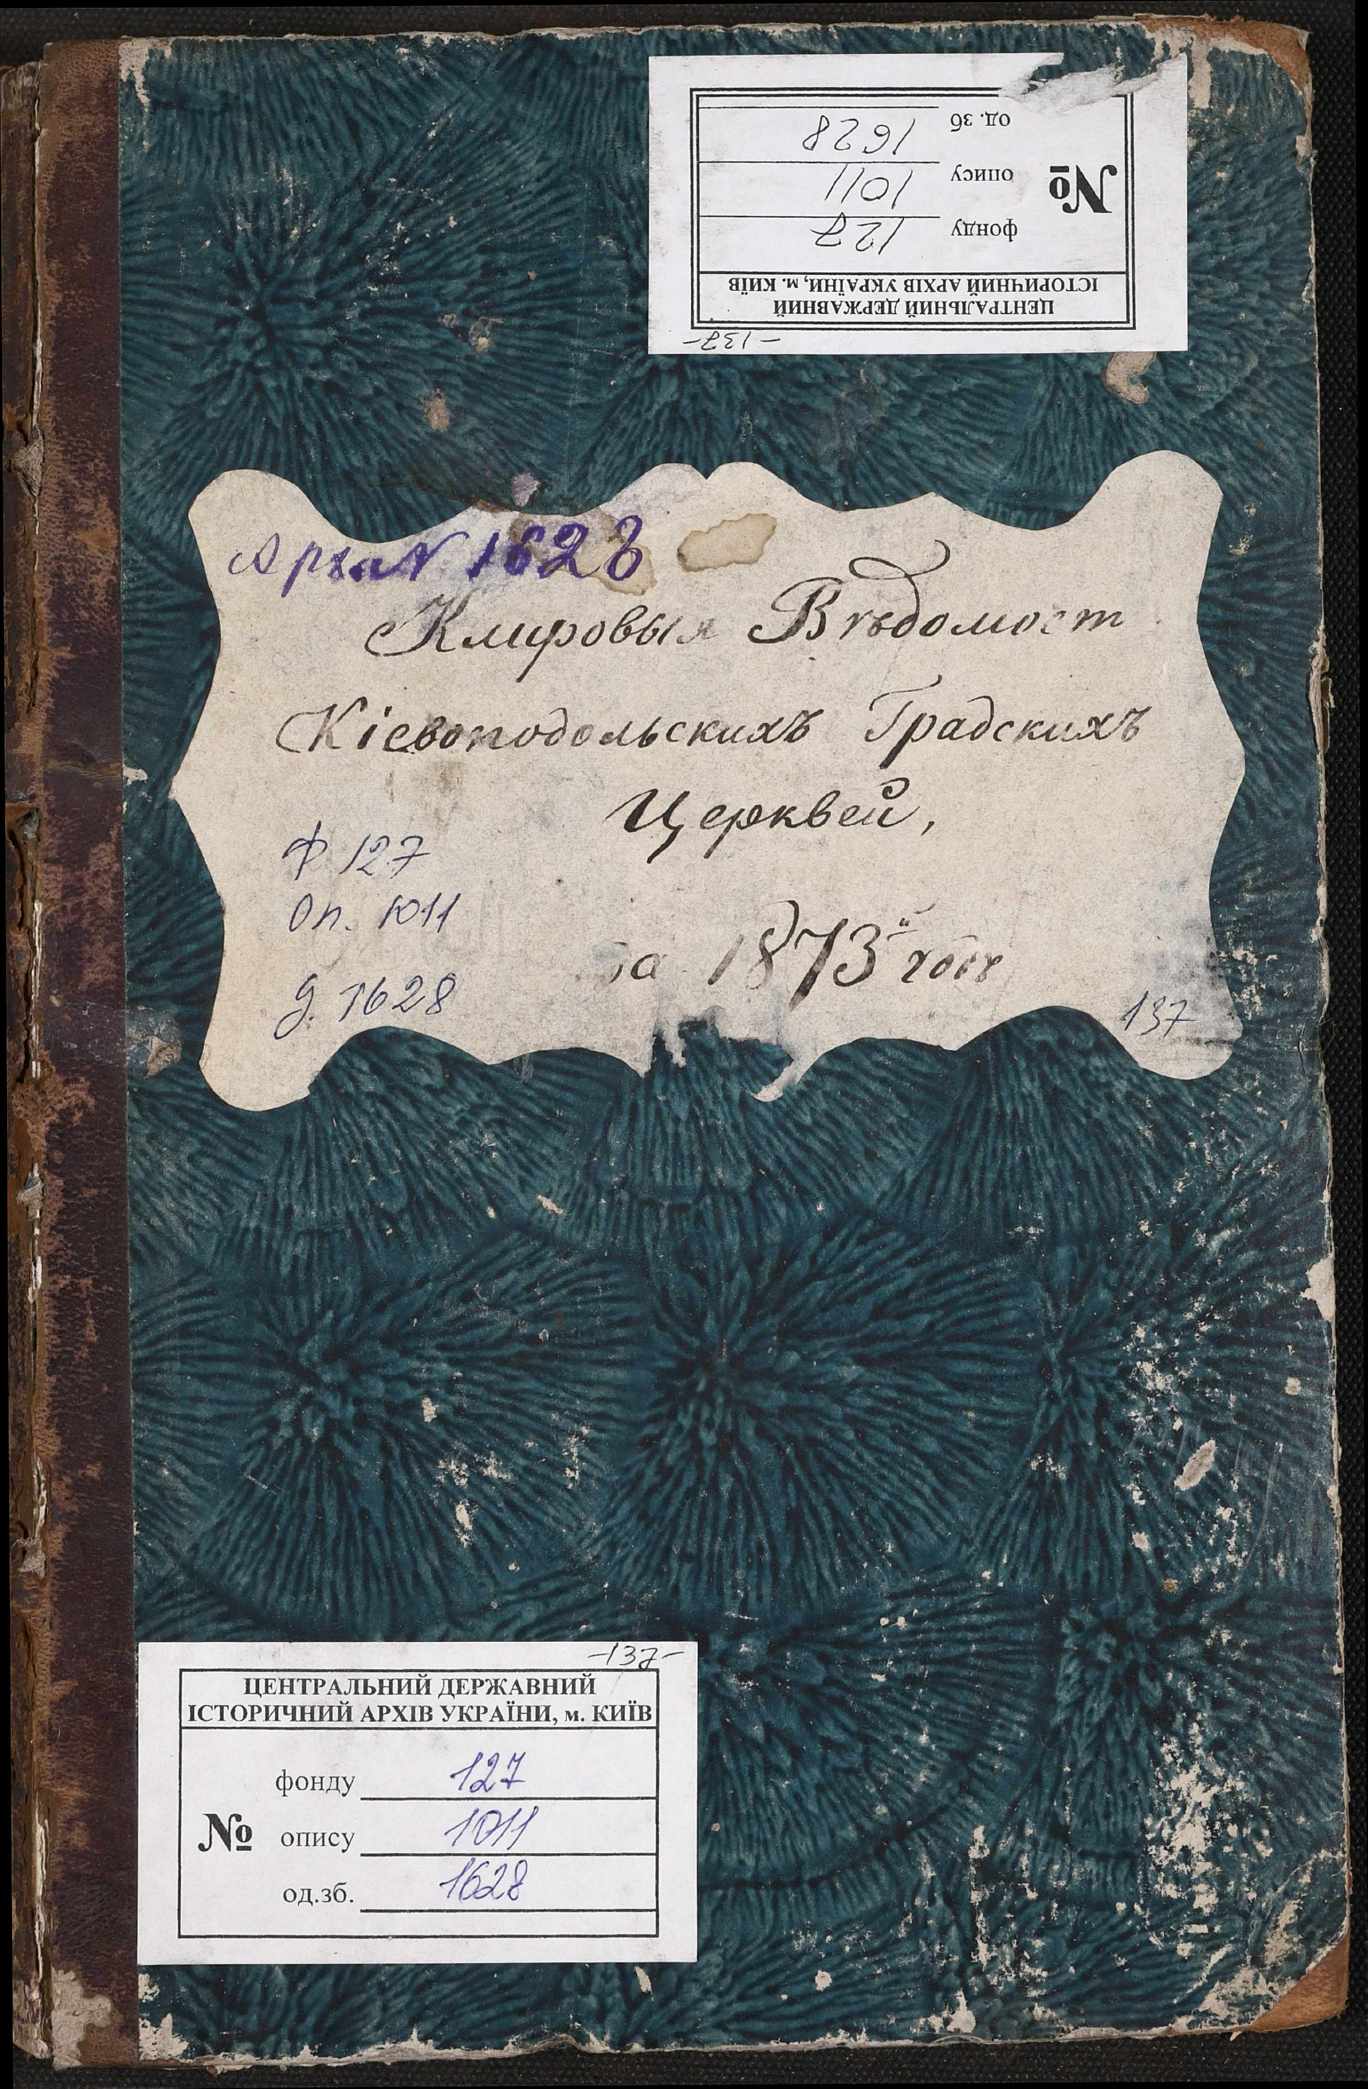 -137-
ЦЕНТРАЛЬНИЙ ДЕРЖАВНИЙ
ІСТОРИЧНИЙ АРХІВ УКРАЇНИ, м. КИЇВ
№
фонду 127
опису 1011
од. зб 1628
Арх. N 1628
Клировыя Вѣдомост
Кіевоподольскихъ Градскихъ
Церквей,
за 1873й годъ
Ф 127
Оп. 1011
д. 1628
137
-137-
ЦЕНТРАЛЬНИЙ ДЕРЖАВНИЙ
ІСТОРИЧНИЙ АРХІВ УКРАЇНИ, м. КИЇВ
№
фонду 127
опису 1011
од.зб. 1628